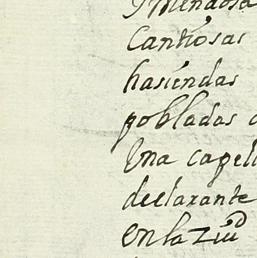 y mendosa
Cantiosas
hasiendas
pobladas
Una capell
declarante
en la ziu^d